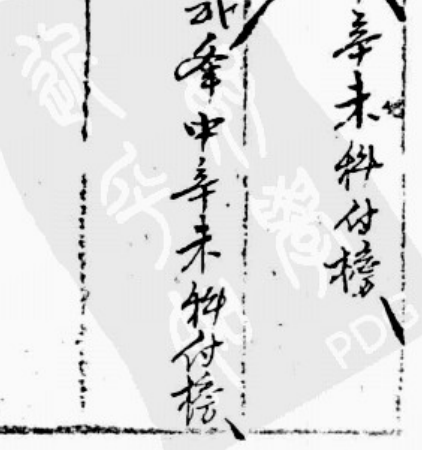 辛未科付榜
峯中辛未科付榜
PDG